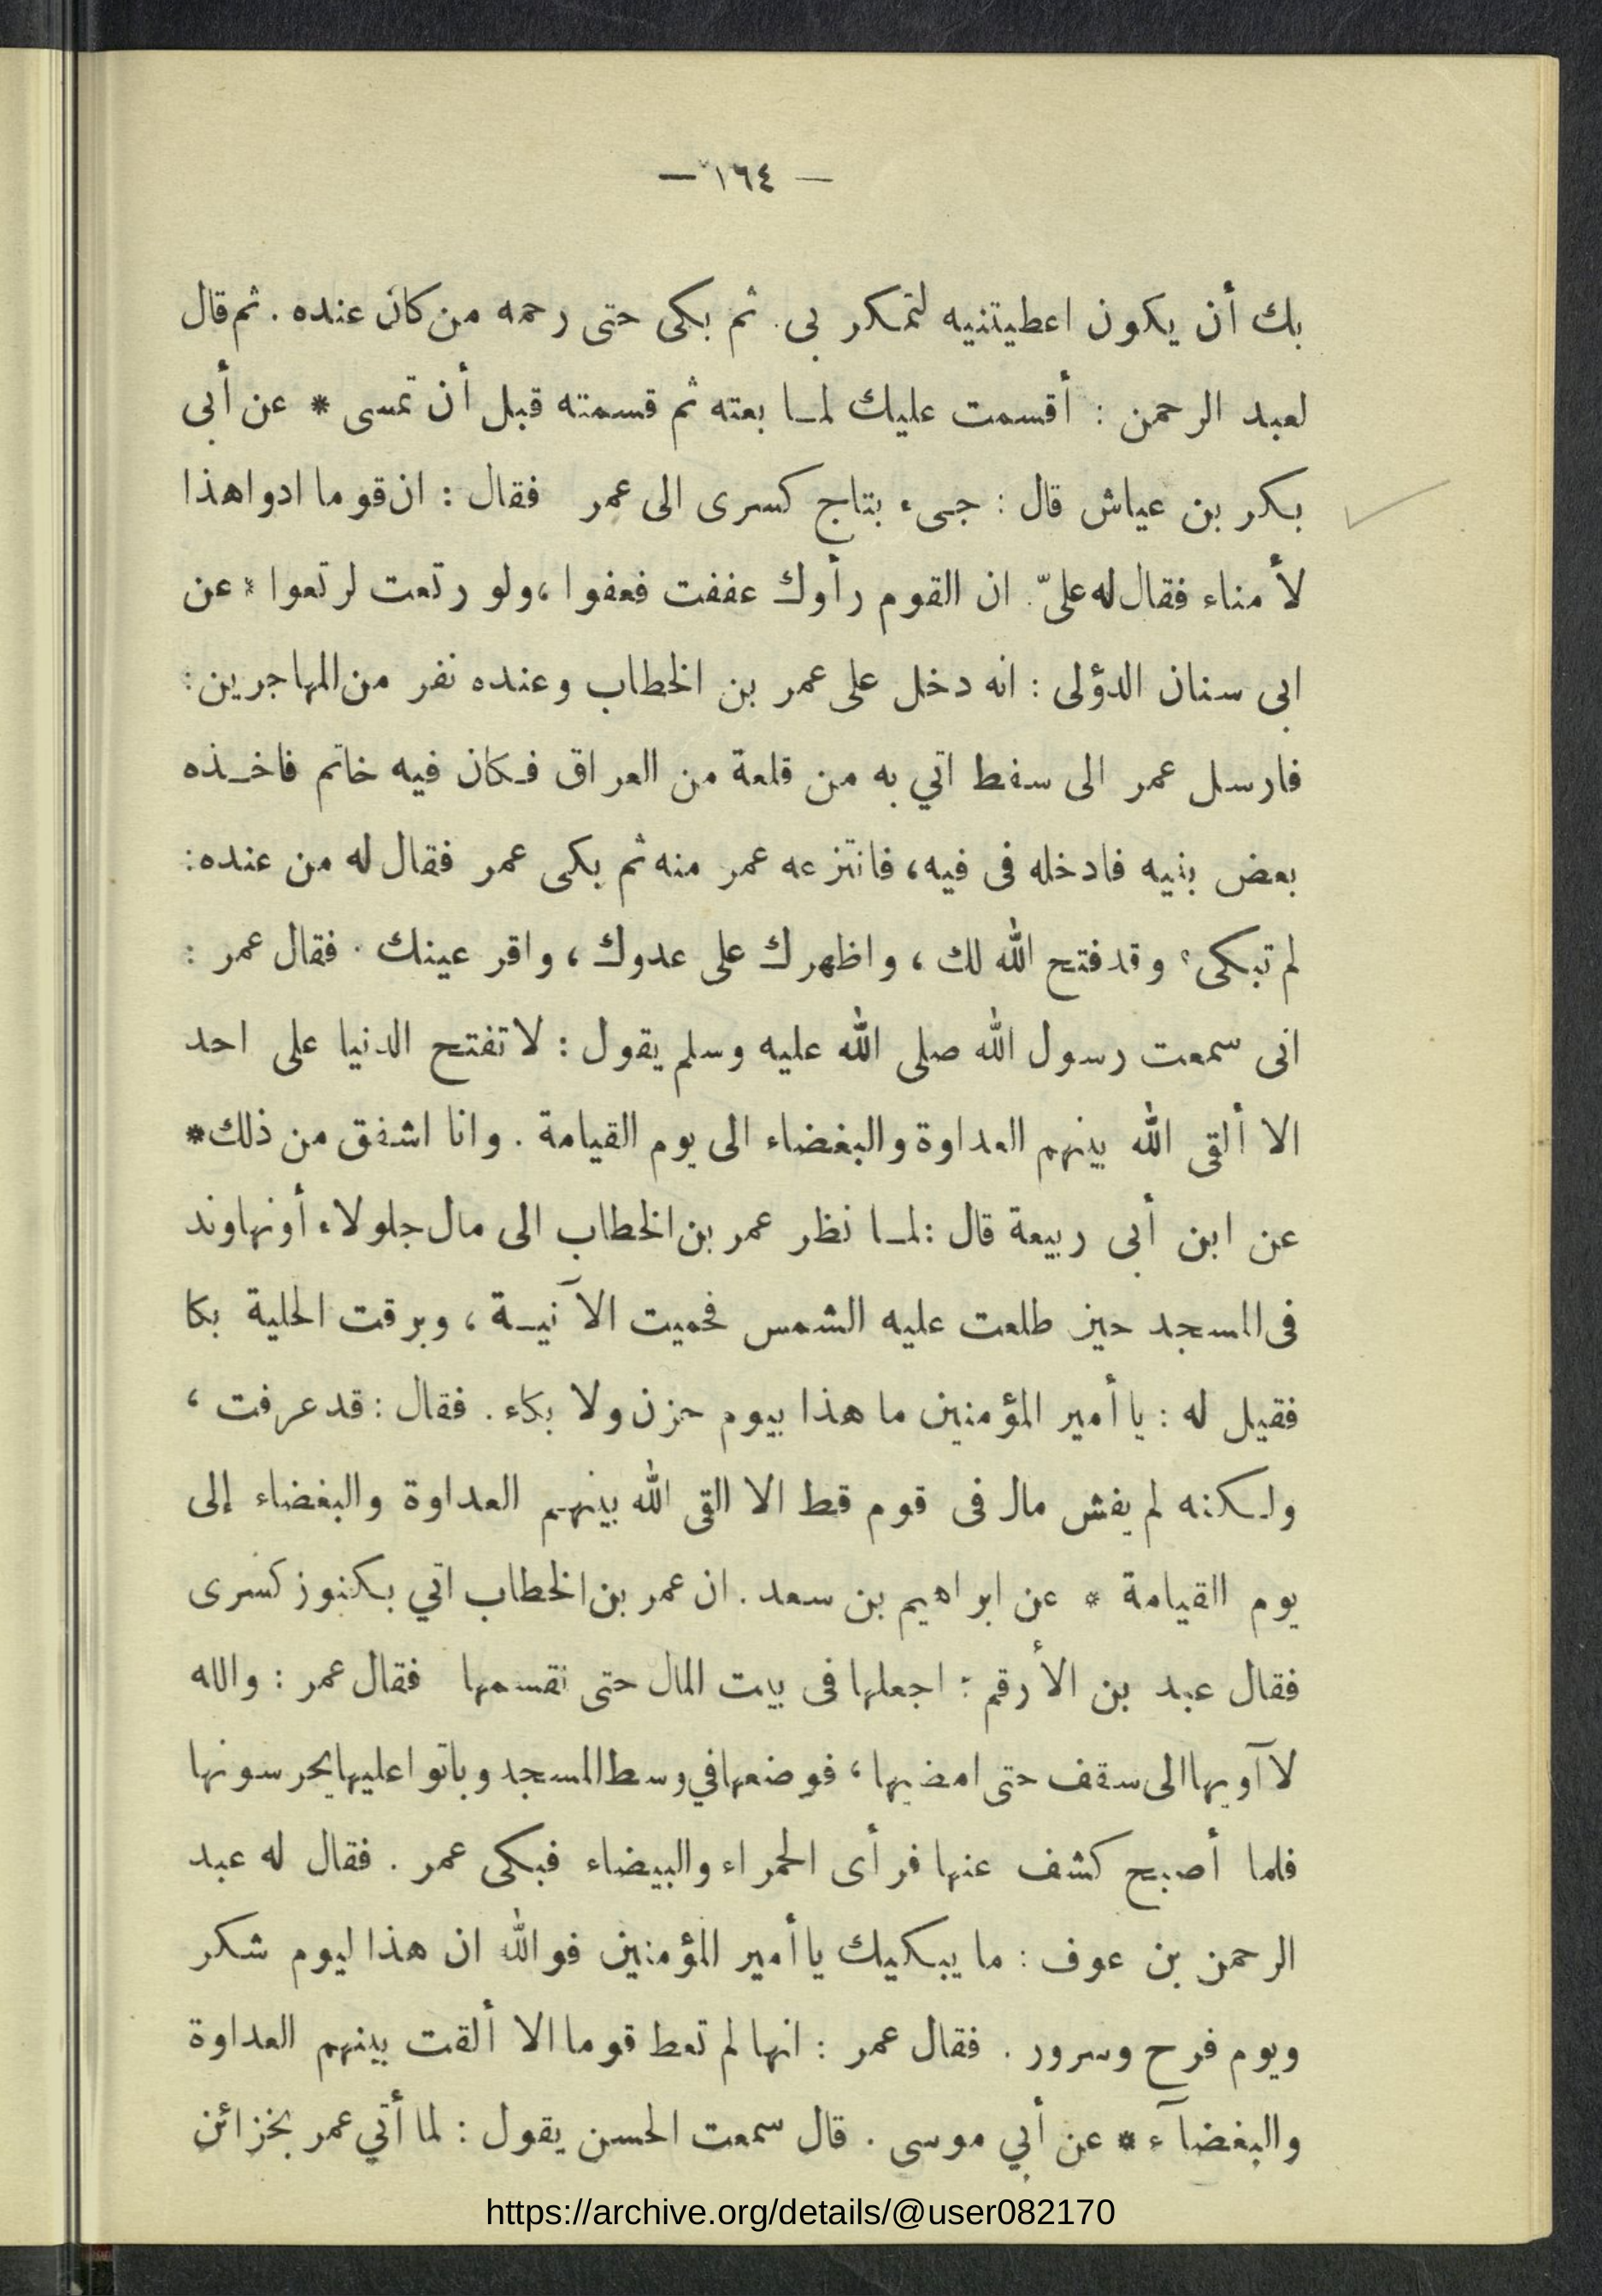 — ١٦٤ —
بك أن يكون اعطيتنيه لتمكر بى. ثم بكى حتى رحمه من كان عنده. ثم قال
لعبد الرحمن : أقسمت عليك لمـا بعته ثم قسمته قبل أن تمسى * عن أبى
بكر بن عياش قال : جىء بتاج كسرى الى عمر فقال : ان قوما ادوا هذا
لأمناء فقال له علىّ. ان القوم رأوك عففت فعفوا، ولو رتعت لرتعوا * عن
ابى سنان الدؤلى : انه دخل على عمر بن الخطاب وعنده نفر من المهاجرين:
فارسل عمر الى سفط اتي به من قلعة من العراق فـكان فيه خاتم فاخـذه
بعض بنيه فادخله فى فيه، فانتزعه عمر منه ثم بكى عمر فقال له من عنده:
لم تبكى؟ وقد فتح الله لك ، واظهرك على عدوك ، واقر عينك . فقال عمر :
انى سمعت رسول الله صلى الله عليه وسلم يقول : لا تفتح الدنيا على احد
الا ألقى الله بينهم العداوة والبغضاء الى يوم القيامة . وانا اشفق من ذلك*
عن ابن أبى ربيعة قال : لمـا نظر عمر بن الخطاب الى مال جلولاء أونهاوند
فى المسجد حين طلعت عليه الشمس فحميت الآنيـة ، وبرقت الحلية بكا
فقيل له : يا أمير المؤمنين ما هذا بيوم حزن ولا بكاء . فقال : قد عرفت ،
ولـكنه لم يفش مال فى قوم قط الا القى الله بينهـم العداوة والبغضاء إلى
يوم القيامة * عن ابراهيم بن سعد . ان عمر بن الخطاب اتي بـكنوز كسرى
فقال عبد بن الأرقم : اجعلها فى بيت المال حتى نقسمها فقال عمر : والله
لا آويها الى سقف حتى امضيها ، فوضعها في وسط المسجد وباتوا عليها يحرسونها
فلما أصبح كشف عنها فرأى الحمراء والبيضاء فبكى عمر . فقال له عبد
الرحمن بن عوف : ما يبـكيك يا أمير المؤمنين فوالله ان هذا ليوم شكر
ويوم فرح وسرور . فقال عمر : انها لم تعط قوما الا ألقت بينهم العداوة
والبغضآء * عن أبي موسى . قال سمعت الحسن يقول : لما أتي عمر بخزائن
https://archive.org/details/@user082170